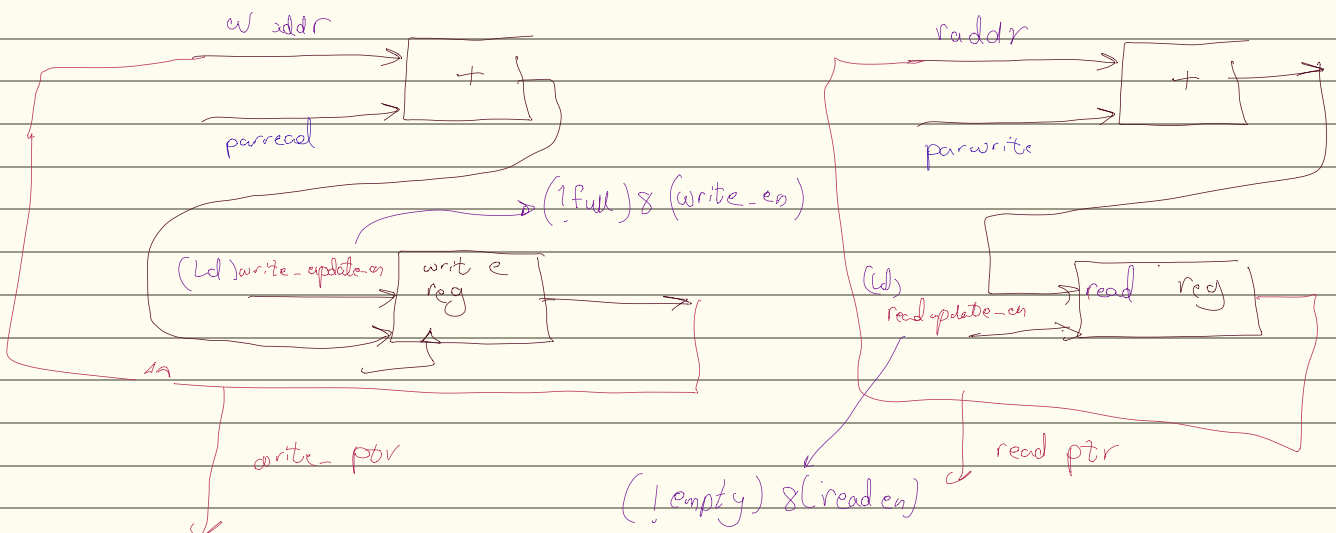 w addr
+
parread
(!full) & (write_en)
(Ld) write_update_en
write
reg
write_ptr
raddr
+
parwrite
(Ld)
read update_en
read reg
read ptr
(!empty) & (read en)